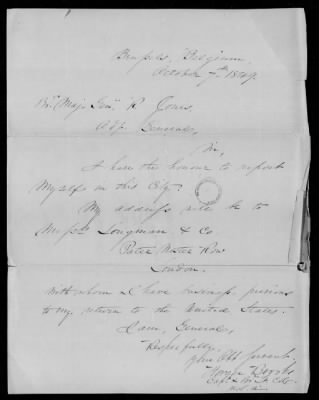 Brussels, Belgium.
October 7th 1849.
Bt. Maj. Genl. R. Jones,
Adj. General,
Sir,
I have the honour to report
Myself in this City.
My address will be to
Messrs Longman & Co.
Pater Noster Row
London.
With whom I have business previous
to my return to the United States.
I am, General,
Respectfully,
Your Obt Servent,
Capt &